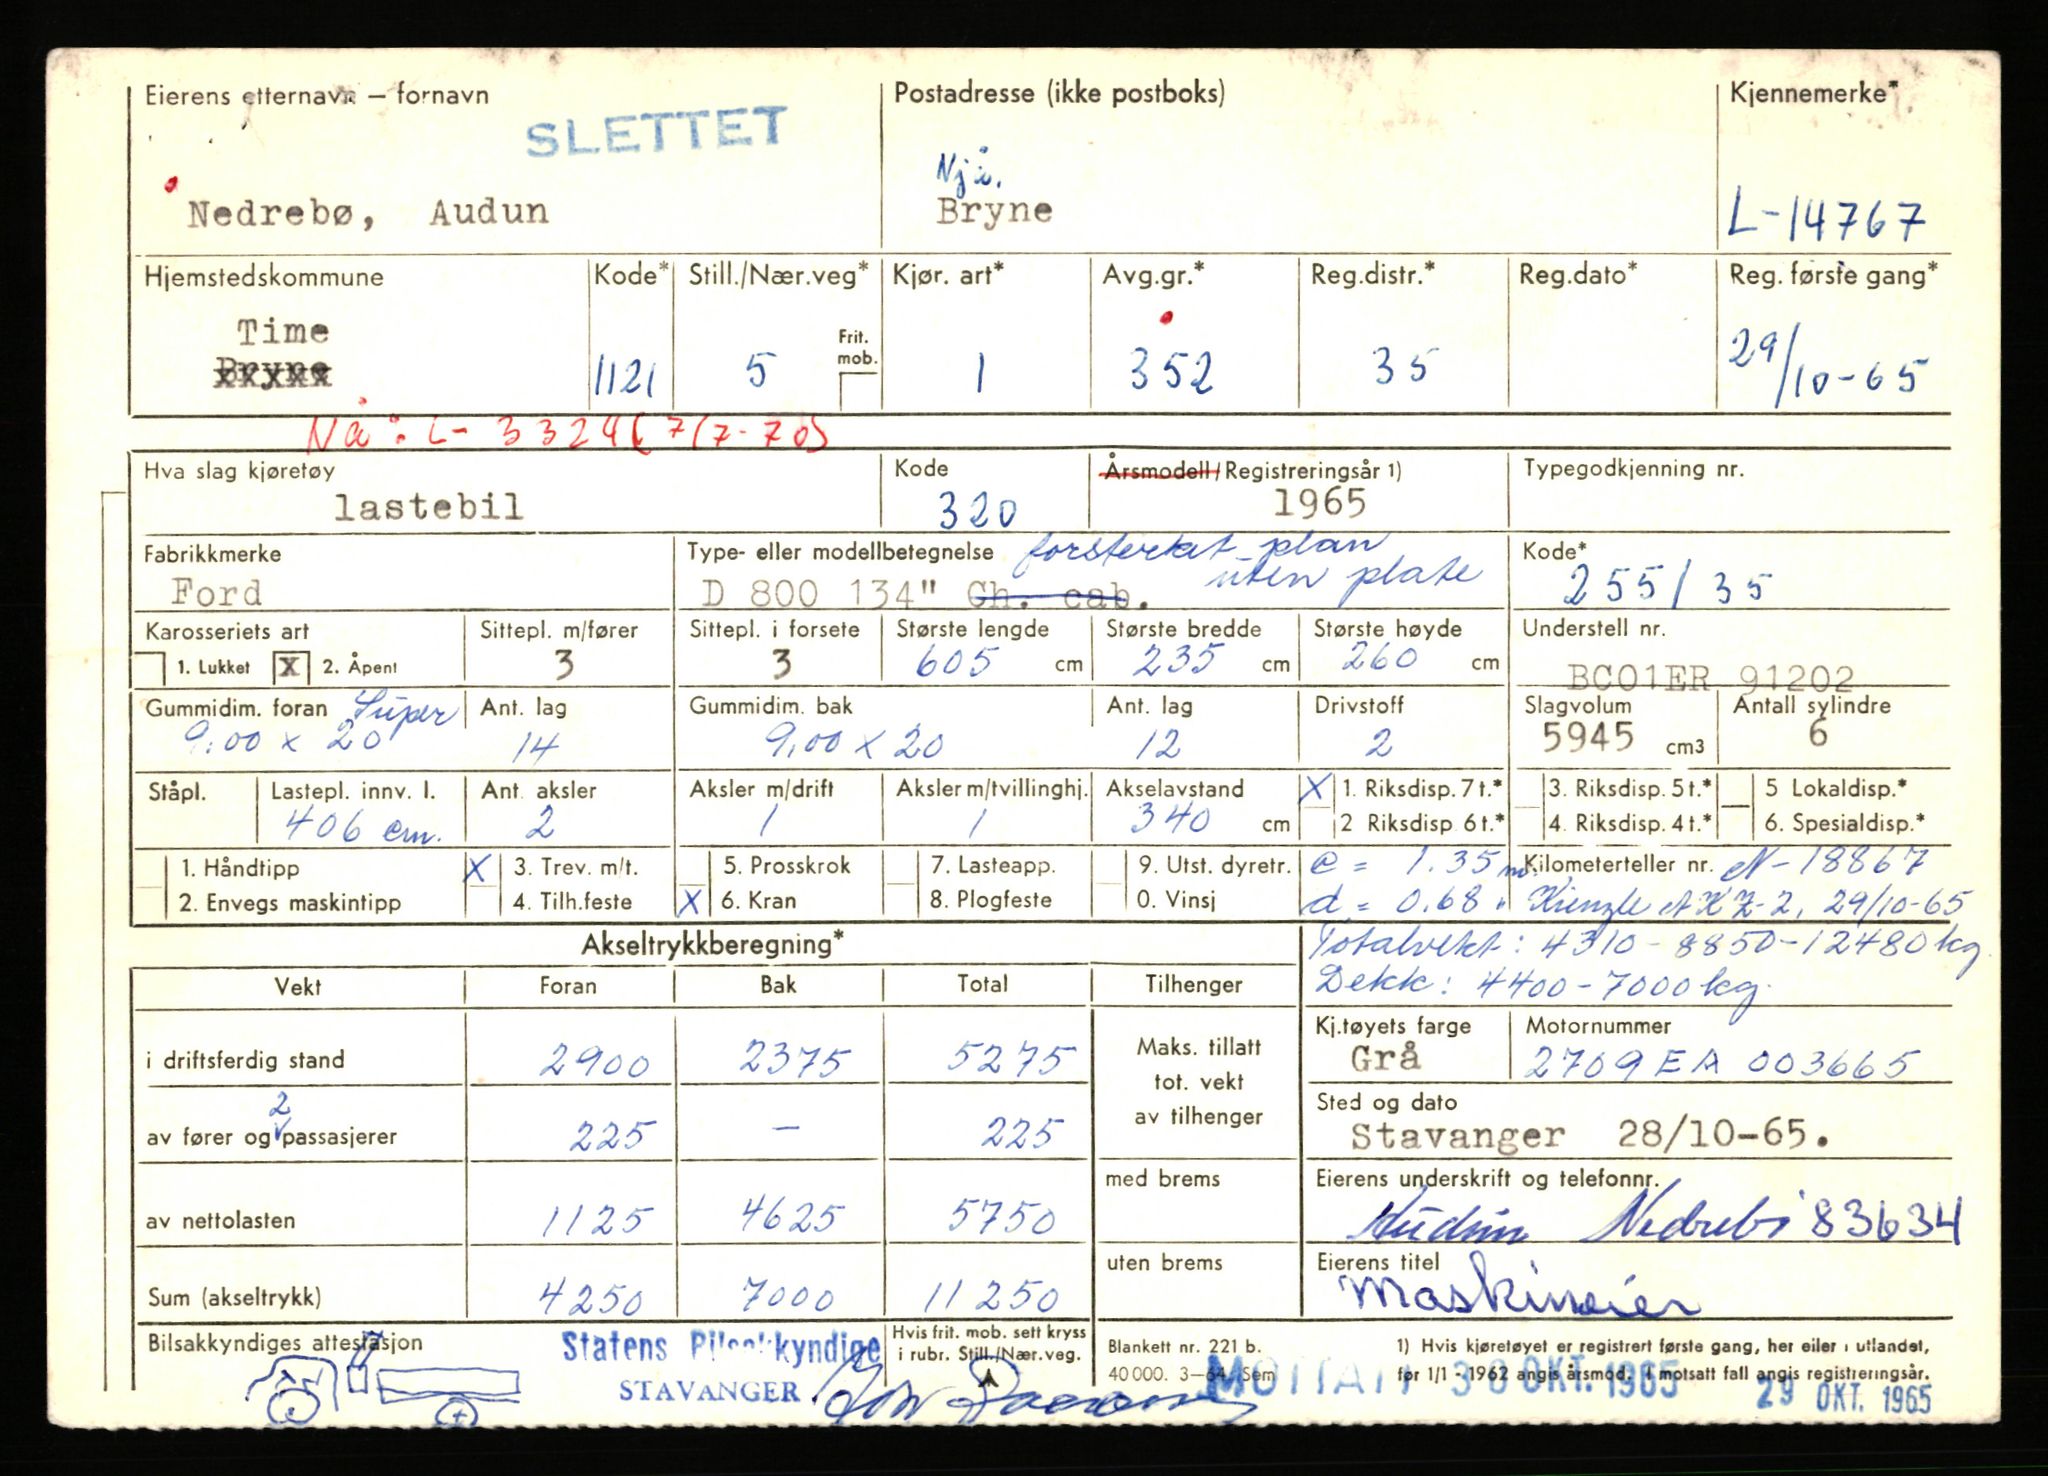 Eierens etternavn — fornavn
SLETTET
Nedrebø, Audun
Postadresse (ikke postboks)
Njå.
Bryne
Kjennemerke*
L-14767
Hjemstedskommune
Time
Bryne
Kode*
1121
Still./Nær.veg*
5
Frit. mob.
Kjør. art*
1
Avg.gr.*
352
Reg.distr.*
35
Reg.dato*
Reg. første gang*
29/10-65
Nå: L- 3324 (7/7-70)
Hva slag kjøretøy
lastebil
Kode
320
Årsmodell/Registreringsår 1)
1965
Typegodkjenning nr.
Fabrikkmerke
Ford
Type- eller modellbetegnelse
forsterket plan
uten plate
D 800 134" Ch. cab.
Kode*
255/35
Karosseriets art
1. Lukket X 2. Åpent
Sittepl. m/fører
3
Sittepl. i forsete
3
Største lengde
605 cm
Største bredde
235 cm
Største høyde
260 cm
Understell nr.
BC01ER 91202
Gummidim. foran Super
9.00 x 20
Ant. lag
14
Gummidim. bak
9.00 x 20
Ant. lag
12
Drivstoff
2
Slagvolum
5945 cm3
Antall sylindre
6
Ståpl.
Lastepl. innv. l.
406 cm.
Ant. aksler
2
Aksler m/drift
1
Aksler m/tvillinghj.
1
Akselavstand
340 cm
X 1. Riksdisp. 7 t.*
2 Riksdisp 6 t.*
3. Riksdisp. 5 t.*
4. Riksdisp. 4 t.*
5 Lokaldisp.*
6. Spesialdisp.*
1. Håndtipp
2. Envegs maskintipp
X 3. Trev. m/t.
4. Tilh.feste
5. Prosskrok
X 6. Kran
7. Lasteapp.
8. Plogfeste
9. Utst. dyretr.
0. Vinsj
c = 1.35 m.
d = 0.68 "
Kilometerteller nr. N-18867
Kienzle 29/10-65
Akseltrykkberegning*
Totalvekt: 4310-8850-12480 kg
Dekk: 4400-7000 kg.
Vekt Foran Bak Total Tilhenger
i driftsferdig stand 2900 2375 5275
Maks. tillatt
tot. vekt
av tilhenger
Kj.tøyets farge
Grå
Motornummer
2709 EA 003665
2
av fører og passasjerer 225 — 225
Sted og dato
Stavanger 28/10-65.
av nettolasten 1125 4625 5750
med brems
Eierens underskrift og telefonnr.
Audun Nedrebø 83634
Sum (akseltrykk) 4250 7000 11250
uten brems
Eierens titel
Maskineier
Bilsakkyndiges attestasjon
Statens Bilsakkyndige
STAVANGER
Hvis frit. mob. sett kryss
i rubr. Still./Nær.veg.
Blankett nr. 221 b.
40 000. 3—64. Sem
1) Hvis kjøretøyet er registrert første gang, her eller i utlandet,
før 1/1 - 1962 angis årsmod. I motsatt fall angis registreringsår.
MOTTATT 30 OKT. 1965
29 OKT. 1965